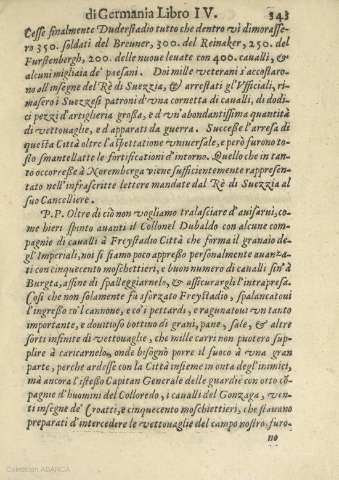 di Germania Libro IV. 343
Cesse finalmente Duderstadio tutto che dentro vi dimorasse-
ro 350. soldati del Breuner, 300. del Reinaker, 250. del
Furstenbergh, 200. delle nuoue leuate con 400. caualli, &
alcuni migliaia de' paesani. Doi mille veterani s'accostaro-
no all'insegne del Rè di Suezzia, & arrestati gl'Vfficiali, ri-
masero i Suezzesi patroni d'vna cornetta di caualli, di dodi-
ci pezzi d'artiglieria grossa, e d'vn'abondantissima quantità
di vettouaglie, ed apparati da guerra. Successe l'arresa di
questa Città oltre l'aspettatione vniuersale, e però furono to-
sto smantellatte le fortificationi d'intorno. Quello che in tan-
to occorresse à Noremberga viene sufficientemente rappresen-
tato nell'infrascritte lettere mandate dal Rè di Suezzia al
suo Cancelliere.
P.P. Oltre di ciò non vogliamo tralasciare d'auisarui, co
me hieri spinto auanti il Collonel Dubaldo con alcune com-
pagnie di caualli à Freystadio Città che forma il granaio de-
gl'Imperiali, noi si siamo poco appresso personalmente auanza-
ti con cinquecento moschettieri, e buon numero di caualli sin'à
Burgta, affine di spalleggiarnelo, & assicurargli l'intrapresa.
Così che non solamente fù sforzato Freystadio, spalancatoui
l'ingresso co'l cannone, e co'i pettardi, e ragunatoui vn tanto
importante, e douitioso bottino di grani, pane, sale, & altre
sorti infinite di vettouaglie, che mille carri non puotero sup-
plire à caricarnelo, onde bisognò porre il fuoco à vna gran
parte, perche ardesse con la Città insieme in onta degl'inimici,
mà ancora l'istesso Capitan Generale delle guardie con otto cō-
pagnie d'huomini del Colloredo, i caualli del Gonzaga, ven-
ti insegne de' Croatti, e cinquecento moschiettieri, che stauano
preparati d'intercedere le vettouaglie del campo nostro, furo-
no
Colección ABARCA